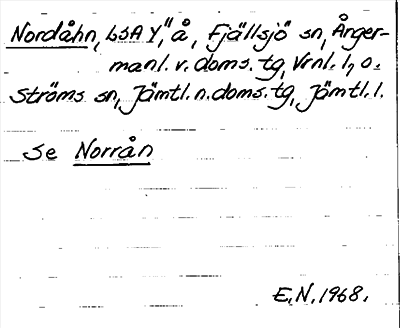 Nordåhn, LSA Y, "å, Fjällsjö sn, Ånger-
manl. v. doms. tg, Vrnl. l, o.
Ströms sn, Jämtl. n. doms. tg, Jämtl. l.
Se Norrån
E.N. 1968.